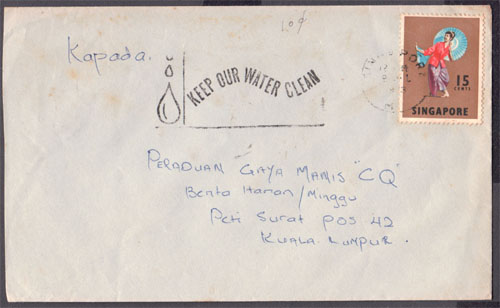 Kapada.
KEEP OUR WATER CLEAN
15
CENTS
SINGAPORE
PERADUAN GAYA MANIS "CQ"
Berita Harian/Minggu
Peti Surat POS 42
KUALA LUMPUR.